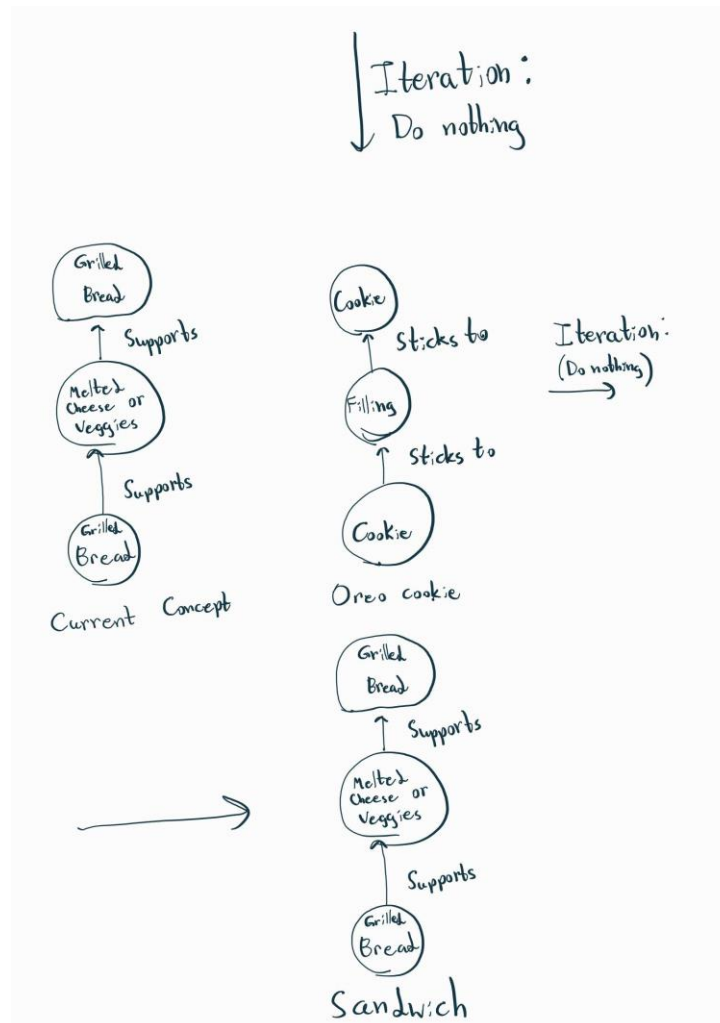 Iteration:
Do nothing
Grilled
Bread
Supports
Melted
Cheese or
Veggies
Supports
Grilled
Bread
Current Concept
Cookie
Sticks to
Filling
Sticks to
Cookie
Oreo cookie
Iteration:
(Do nothing)
Grilled
Bread
Supports
Melted
Cheese or
Veggies
Supports
Grilled
Bread
Sandwich